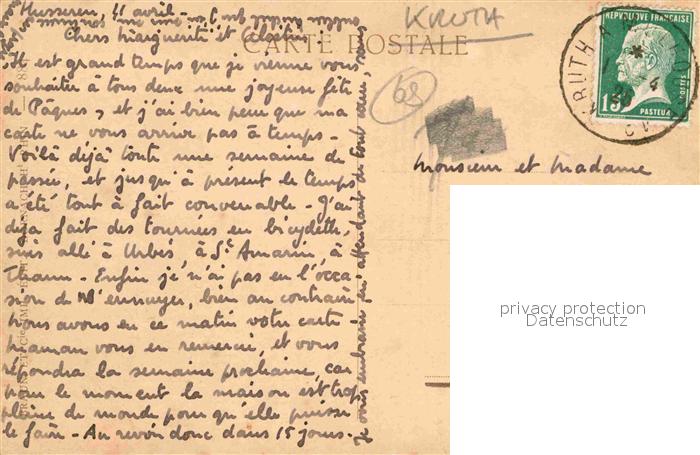 Husseren, 11 avril -
Chers Marguerite et
Il est grand temps que je vienne vous
souhaiter à tous deux une joyeuse fête
de Pâques, et j'ai bien peur que ma
carte ne vous arrive pas à temps -
Voilà déjà toute une semaine de
passée, et jusqu'à présent le temps
a été tout à fait convenable - J'ai
déjà fait des tournées en bicyclette,
suis allé à Urbès, à St Amarin, à
Thann - Enfin je n'ai pas eu l'occa
sion de m'ennuyer, bien au contraire
Nous avons eu ce matin votre carte -
Maman vous en remercie, et vous
répondra la semaine prochaine, car
pour le moment la maison est trop
pleine de monde pour qu'elle puisse
le faire - Au revoir donc dans 15 jours -
je vous embrasse en attendant de tout cœur,
CARTE POSTALE
KRUTH
68
Monsieur et Madame
REPUBLIQUE FRANÇAISE
POSTES
15c
PASTEUR
KRUTH
privacy protection
Datenschutz